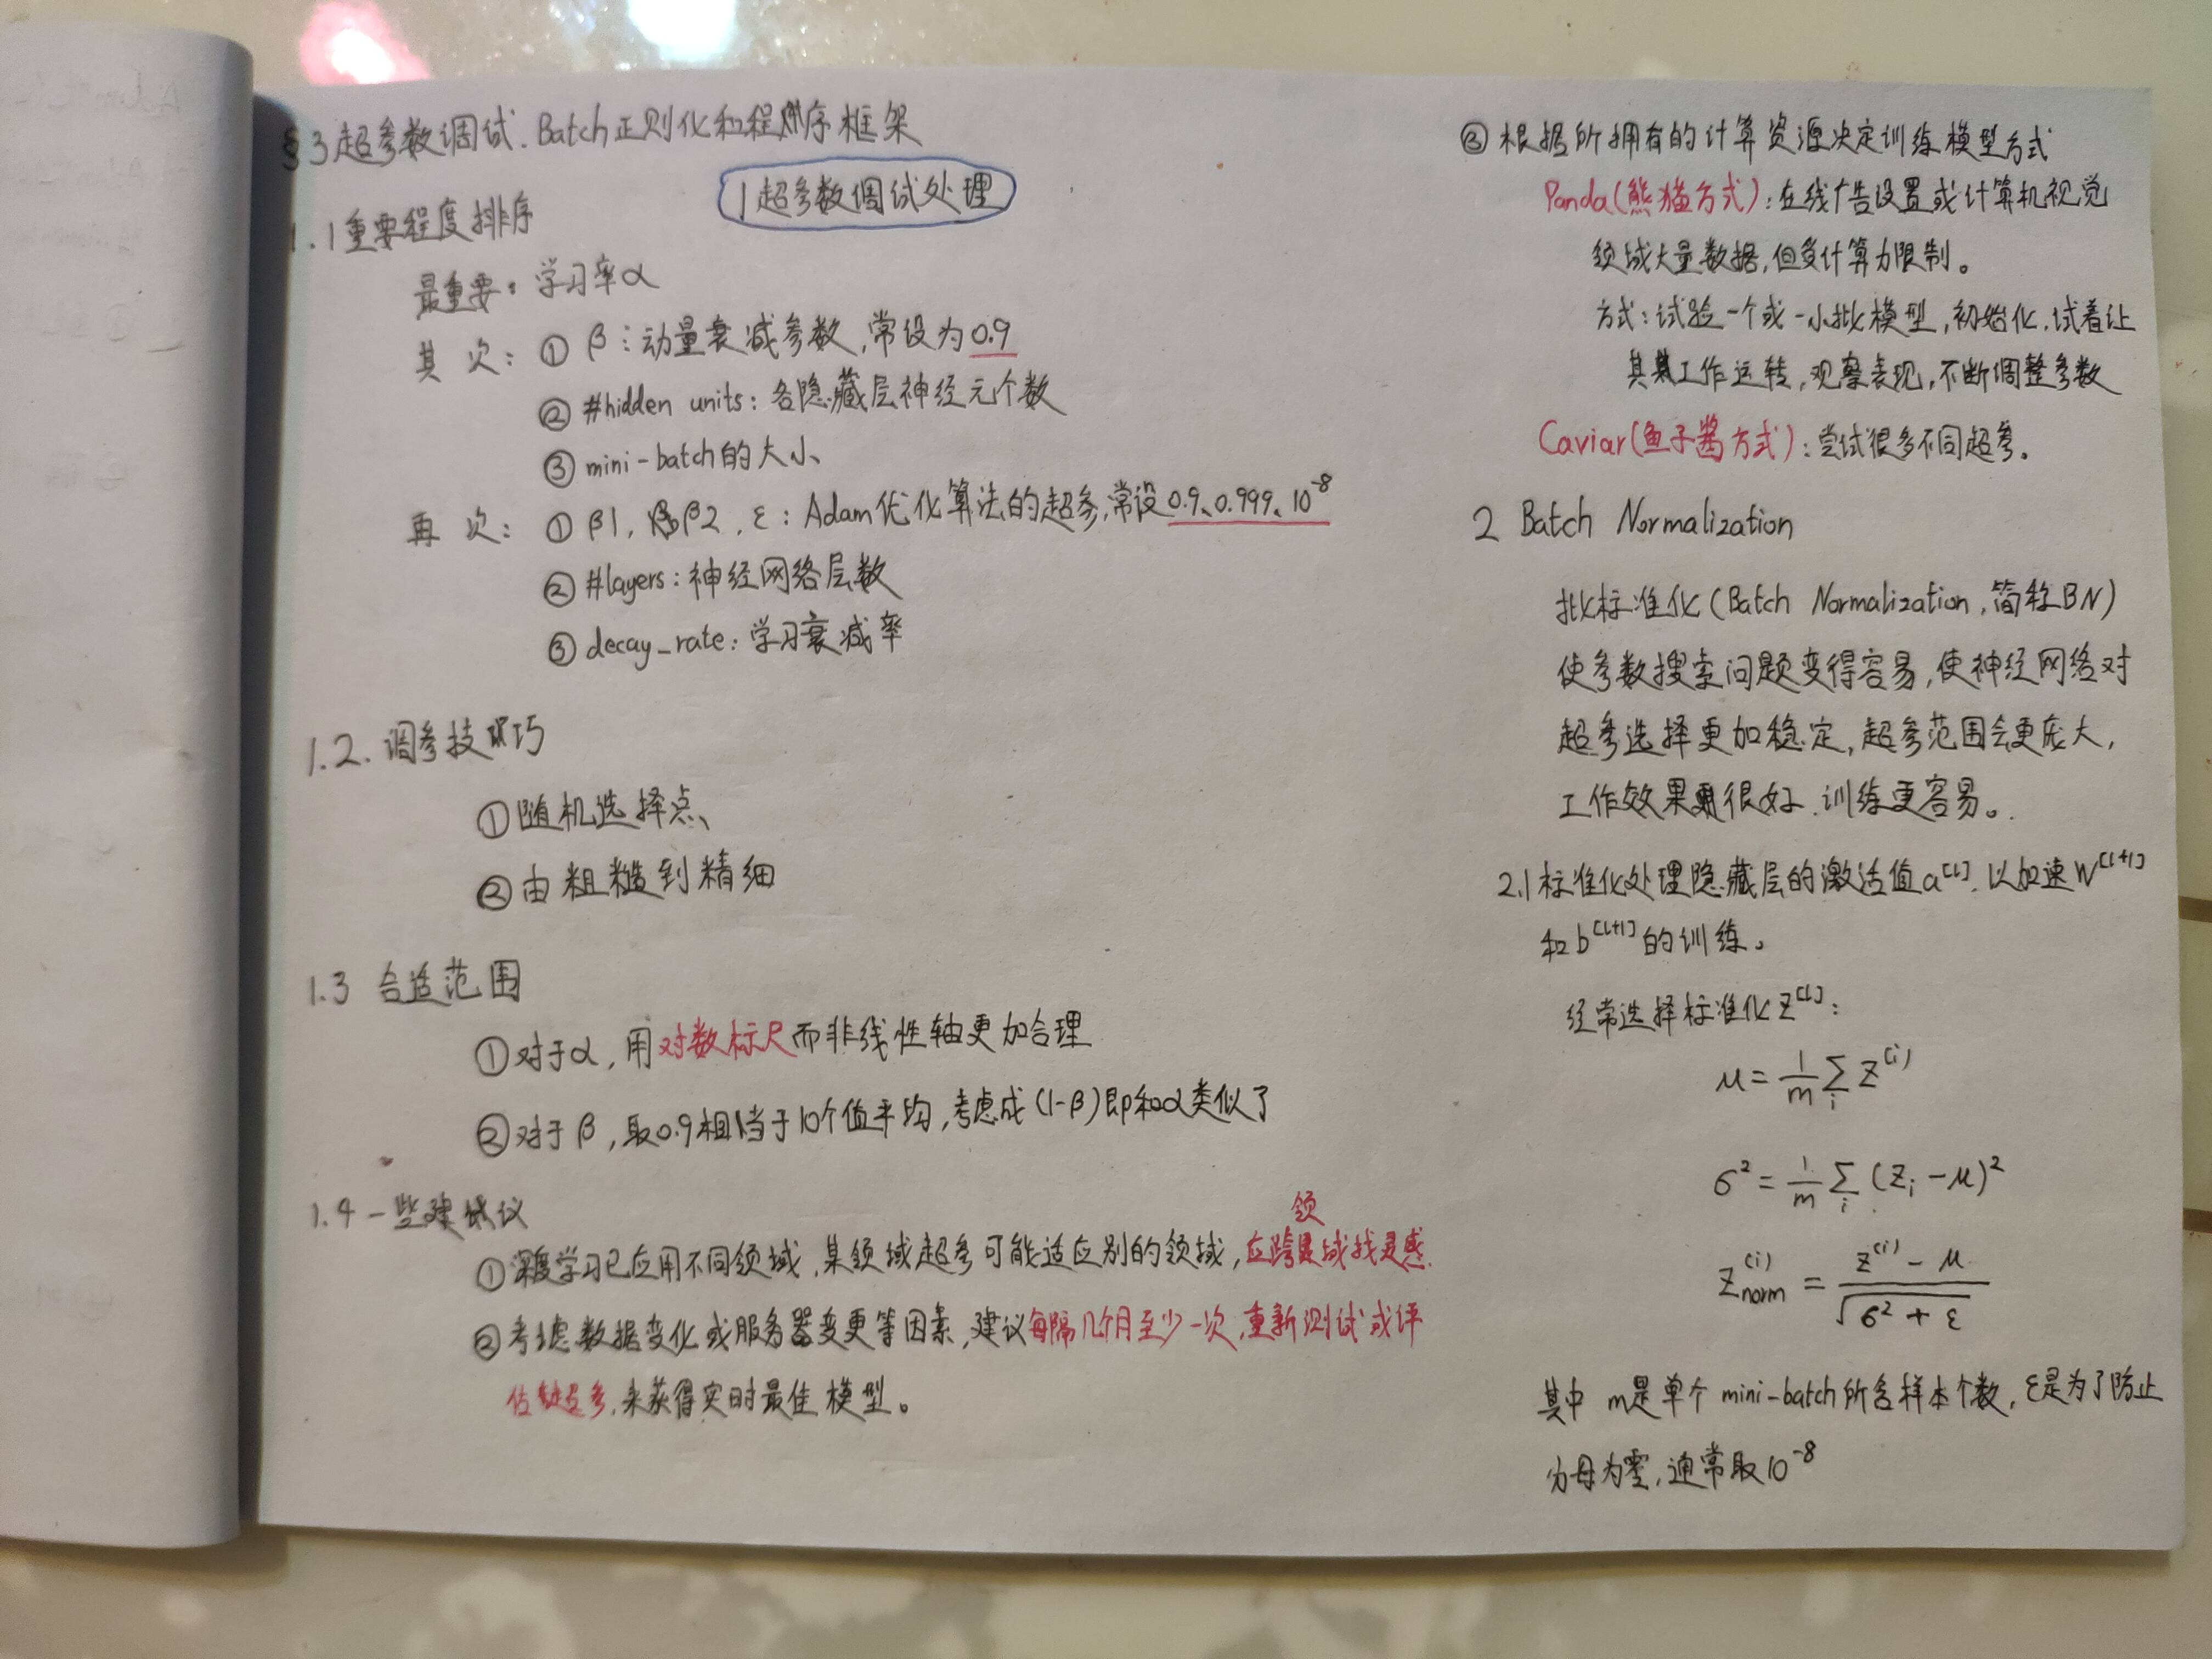 §3超参数调试、Batch正则化和程序框架
1 超参数调试处理
1.1重要程度排序
最重要：学习率α
其 次：① β：动量衰减参数，常设为0.9
② #hidden units：各隐藏层神经元个数
③ mini-batch的大小
再 次：① β1，β2，ε：Adam优化算法的超参，常设0.9、0.999、10⁻⁸
② #layers：神经网络层数
③ decay_rate：学习衰减率
1.2.调参技巧
①随机选择点
②由粗糙到精细
1.3 合适范围
①对于α，用对数标尺而非线性轴更加合理
②对于β，取0.9相当于10个值平均，考虑成(1-β)即和α类似了
1.4 一些建议
①深度学习已应用不同领域，某领域超参可能适应别的领域，应跨领域找灵感.
②考虑数据变化或服务器变更等因素，建议每隔几个月至少一次，重新测试或评
估超参，来获得实时最佳模型。
③ 根据所拥有的计算资源决定训练模型方式
Panda(熊猫方式)：在线广告设置或计算机视觉
领域大量数据，但受计算力限制。
方式：试验一个或一小批模型，初始化，试着让
其工作运转，观察表现，不断调整参数
Caviar(鱼子酱方式)：尝试很多不同超参。
2 Batch Normalization
批标准化(Batch Normalization，简称BN)
使参数搜索问题变得容易，使神经网络对
超参选择更加稳定，超参范围会更庞大，
工作效果很好，训练更容易。
2.1标准化处理隐藏层的激活值a^[l]，以加速W^[l+1]
和b^[l+1]的训练。
经常选择标准化Z^[l]：
μ = 1/m ∑_i Z^(i)
σ² = 1/m ∑_i (Z_i - μ)²
Z_norm^(i) = (Z^(i) - μ) / √(σ² + ε)
其中 m是单个mini-batch所含样本个数，ε是为了防止
分母为零，通常取10⁻⁸